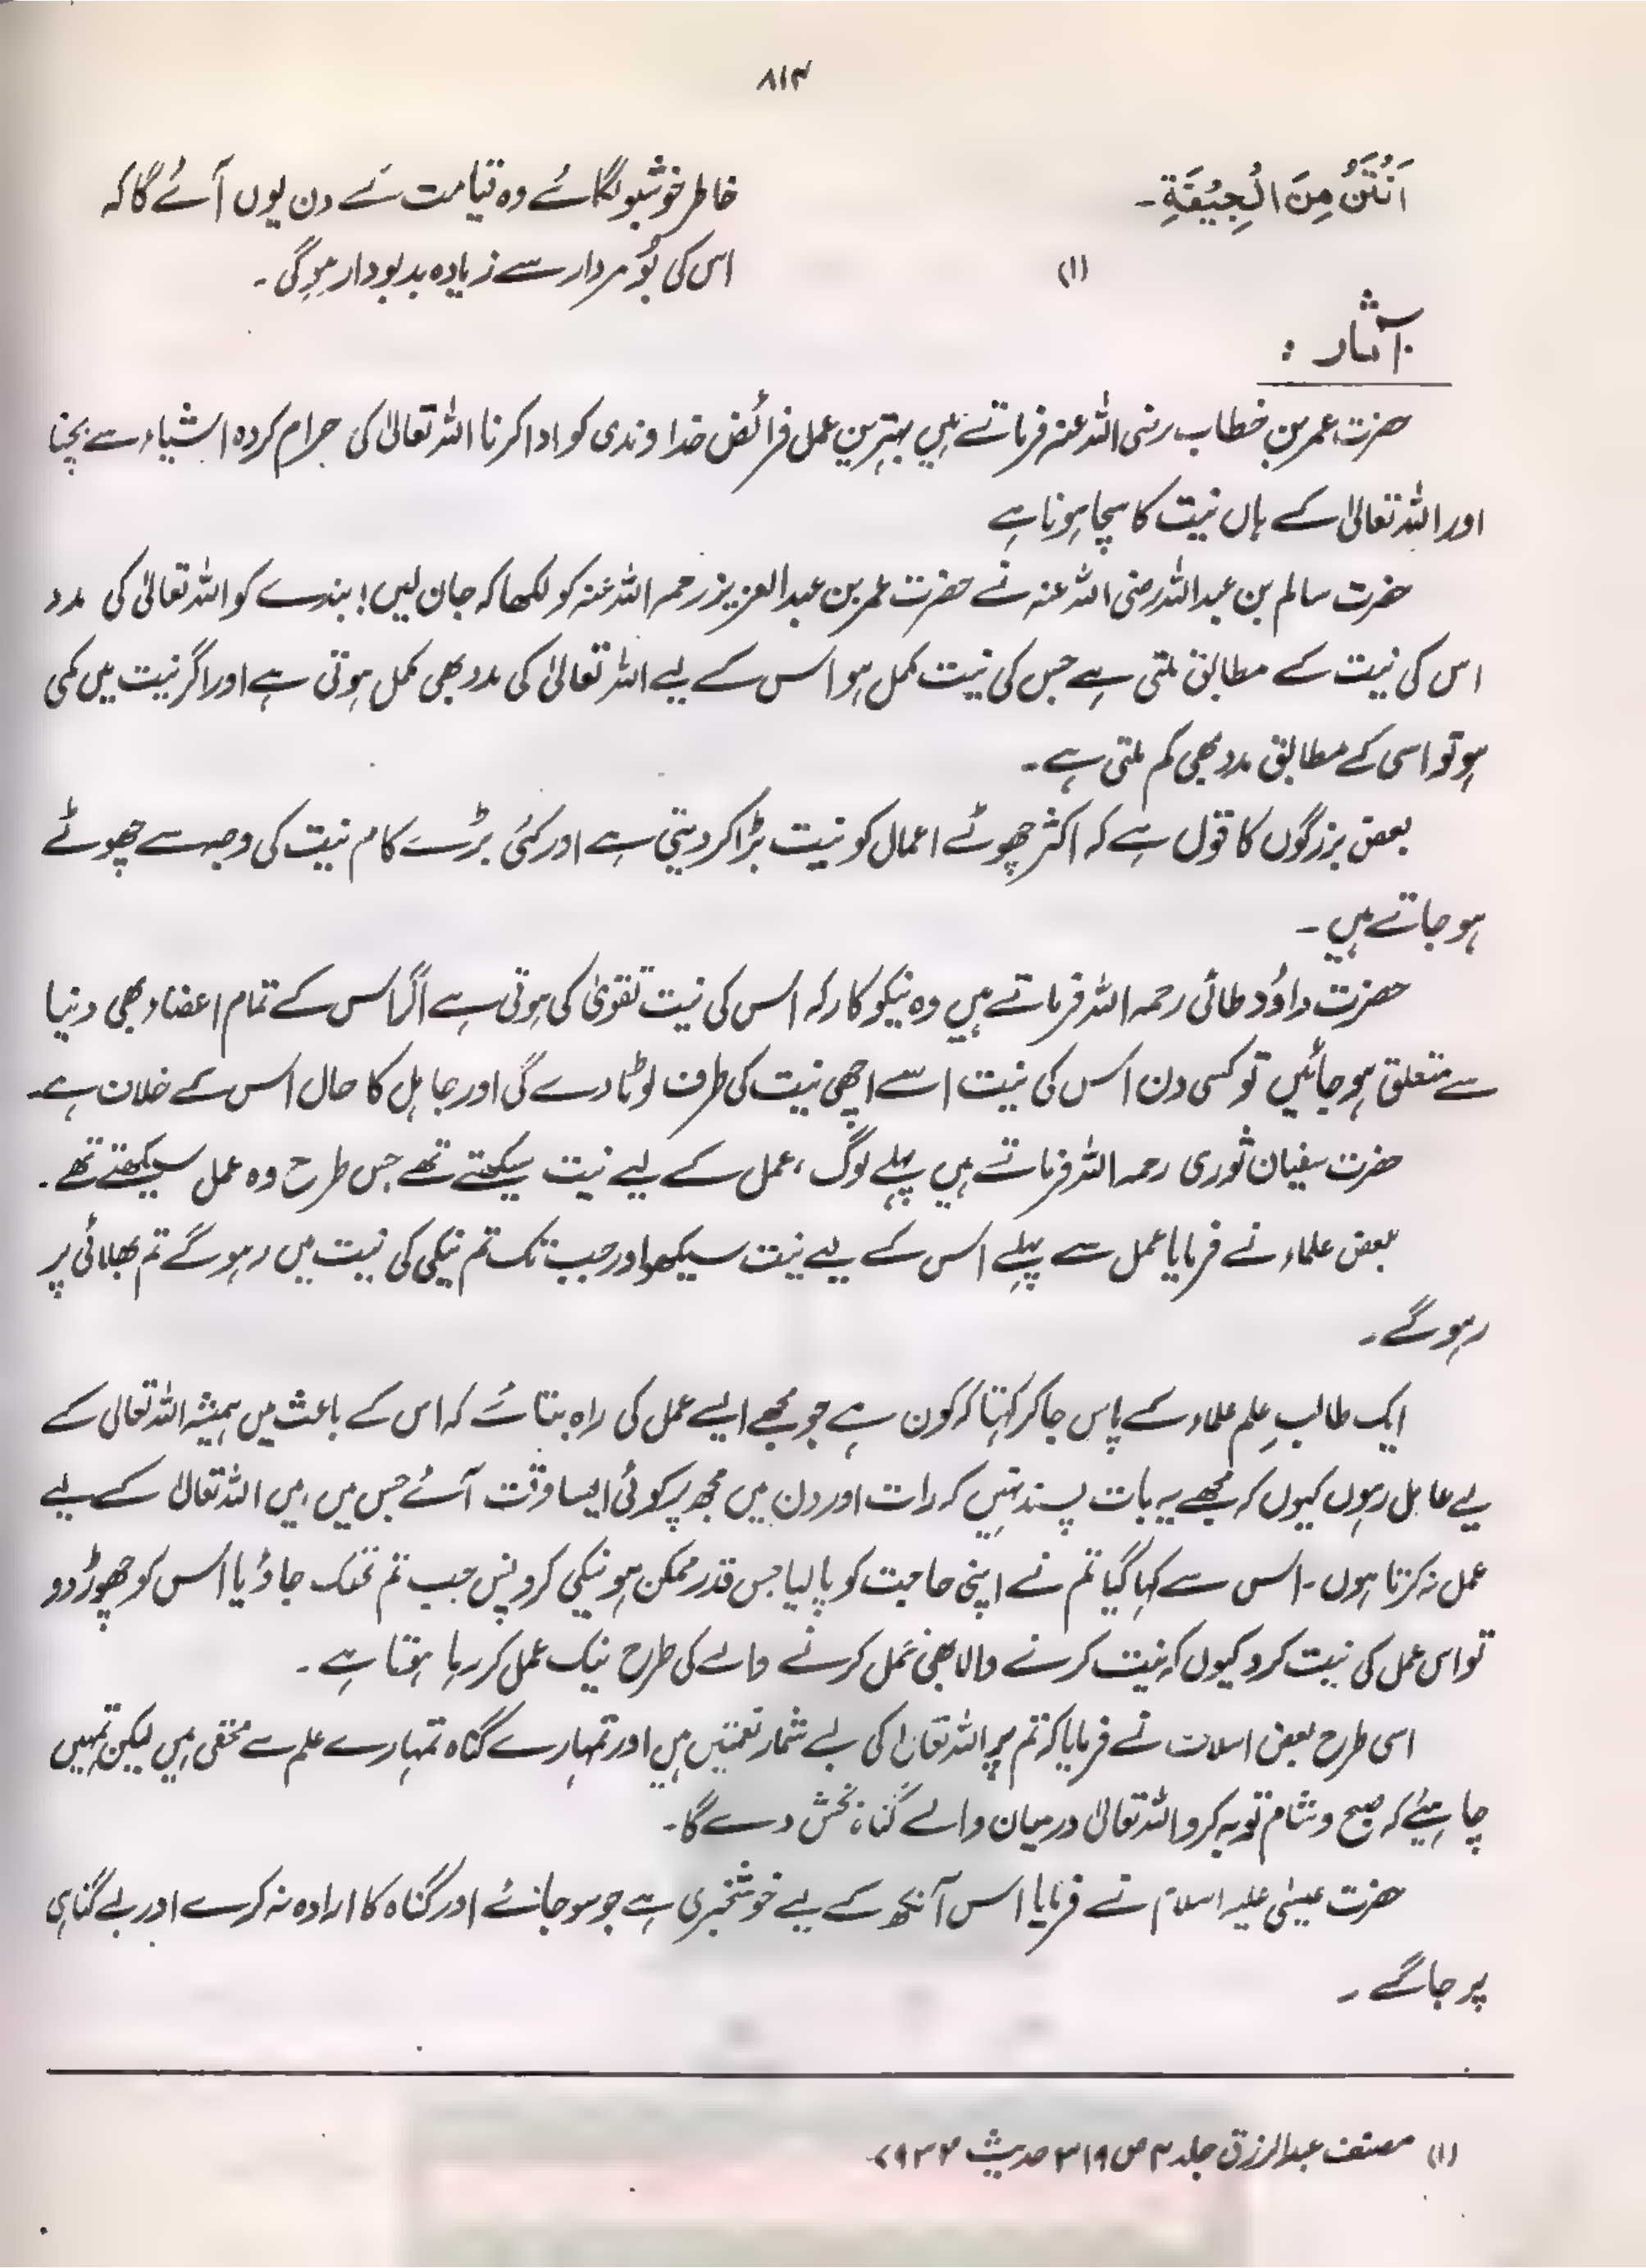 ۸۱۴
اَنْتَنُ مِنَ الْجِیْفَةِ۔
(۱)
خاطر خوشبو لگائے وہ قیامت کے دن یوں آئے گا کہ
اس کی بُو مردار سے زیادہ بدبودار ہوگی۔
آثار :
حضرت عمر بن خطاب رضی اللہ عنہ فرماتے ہیں بہترین عمل فرائض خداوندی کو ادا کرنا اللہ تعالیٰ کی حرام کردہ اشیاء سے بچنا
اور اللہ تعالیٰ کے ہاں نیت کا سچا ہونا ہے
حضرت سالم بن عبداللہ رضی اللہ عنہ نے حضرت عمر بن عبدالعزیز رحمہ اللہ عنہ کو لکھا کہ جان لیں! بندے کو اللہ تعالیٰ کی مدد
اس کی نیت کے مطابق ملتی ہے جس کی نیت مکمل ہو اس کے لیے اللہ تعالیٰ کی مدد بھی مکمل ہوتی ہے اور اگر نیت میں کمی
ہو تو اسی کے مطابق مدد بھی کم ملتی ہے۔
بعض بزرگوں کا قول ہے کہ اکثر چھوٹے اعمال کو نیت بڑا کر دیتی ہے اور کئی بڑے کام نیت کی وجہ سے چھوٹے
ہو جاتے ہیں۔
حضرت داؤد طائی رحمہ اللہ فرماتے ہیں وہ نیکو کار کہ اس کی نیت تقویٰ کی ہوتی ہے اگر اس کے تمام اعضاء بھی دنیا
سے متعلق ہو جائیں تو کسی دن اس کی نیت اسے اچھی نیت کی طرف لوٹا دے گی اور جاہل کا حال اس کے خلاف ہے۔
حضرت سفیان ثوری رحمہ اللہ فرماتے ہیں پہلے لوگ، عمل کے لیے نیت سیکھتے تھے جس طرح وہ عمل سیکھتے تھے۔
بعض علماء نے فرمایا عمل سے پہلے اس کے لیے نیت سیکھو اور جب تک تم نیکی کی نیت میں رہو گے تم بھلائی پر
رہو گے۔
ایک طالبِ علم علماء کے پاس جا کر کہتا کہ کون ہے جو مجھے ایسے عمل کی راہ بتائے کہ اس کے باعث میں ہمیشہ اللہ تعالیٰ کے
لیے عامل رہوں کیوں کہ مجھے یہ بات پسند نہیں کہ رات اور دن میں مجھ پر کوئی ایسا وقت آئے جس میں، میں اللہ تعالیٰ کے لیے
عمل نہ کرتا ہوں۔ اس سے کہا گیا تم نے اپنی حاجت کو پا لیا جس قدر ممکن ہو نیکی کرو پس جب تم تھک جاؤ یا اس کو چھوڑ دو
تو اس عمل کی نیت کرو کیوں کہ نیت کرنے والا بھی عمل کرنے والے کی طرح نیک عمل کر رہا ہوتا ہے۔
اسی طرح بعض اسلاف نے فرمایا کہ تم پر اللہ تعالیٰ کی بے شمار نعمتیں ہیں اور تمہارے گناہ تمہارے علم سے مخفی ہیں لیکن تمہیں
چاہیئے کہ صبح و شام توبہ کرو اللہ تعالیٰ درمیان والے گناہ بخش دے گا۔
حضرت عیسیٰ علیہ اسلام نے فرمایا اس آنکھ کے لیے خوشخبری ہے جو سو جائے اور گناہ کا ارادہ نہ کرے اور بے گناہی
پر جاگے۔
(۱) مصنف عبدالرزاق جلد ۴ ص ۳۱۹ حدیث ۷۹۳۲